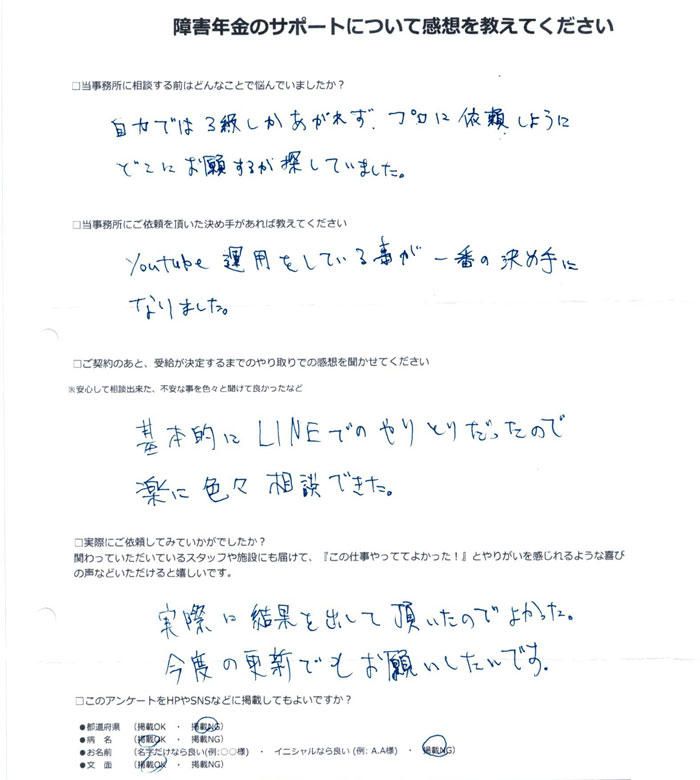 障害年金のサポートについて感想を教えてください
□当事務所に相談する前はどんなことで悩んでいましたか？
自力では3級しかあがれず、プロに依頼しように
どこにお願するか探していました。
□当事務所にご依頼を頂いた決め手があれば教えてください
Youtube運用をしている事が一番の決め手に
なりました。
□ご契約のあと、受給が決定するまでのやり取りでの感想を聞かせてください
※安心して相談出来た、不安な事を色々と聞けて良かったなど
基本的にLINEでのやりとりだったので
楽に色々相談できた。
□実際にご依頼してみていかがでしたか？
関わっていただいているスタッフや施設にも届けて、『この仕事やっててよかった！』とやりがいを感じれるような喜び
の声などいただけると嬉しいです。
実際に結果を出して頂いたのでよかった。
今度の更新でもお願いしたいです。
□このアンケートをHPやSNSなどに掲載してもよいですか？
●都道府県 （掲載OK ・ 掲載NG）
●病 名 （掲載OK ・ 掲載NG）
●お名前 （名字だけなら良い(例:○○様) ・ イニシャルなら良い (例: A.A様) ・ 掲載NG）
●文 面 （掲載OK ・ 掲載NG）